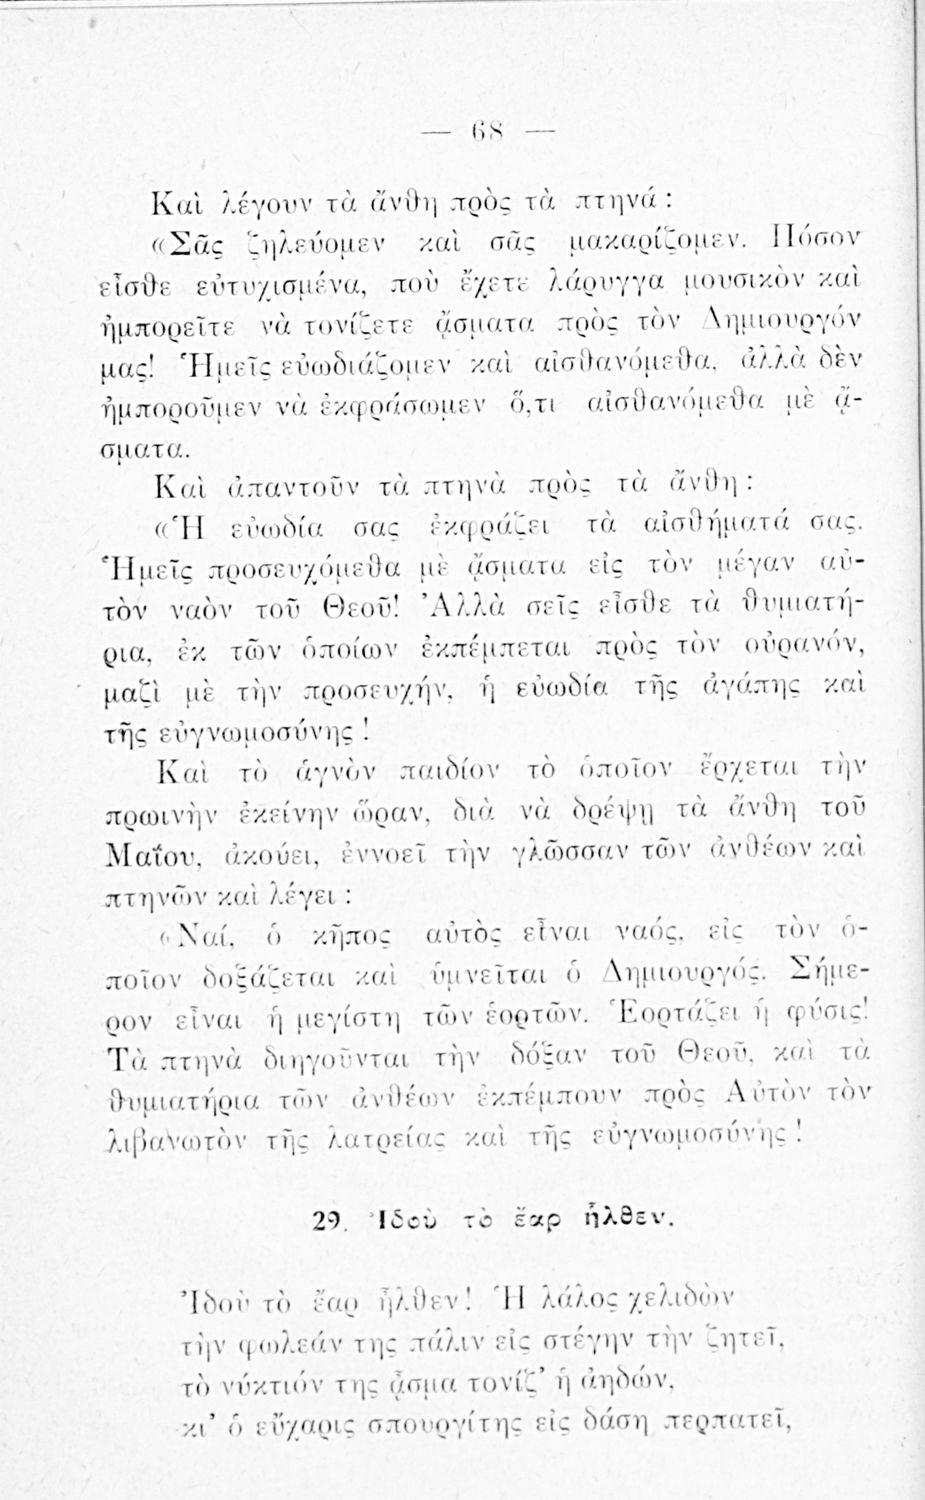 — 68 —
Καὶ λέγουν τὰ ἄνθη πρὸς τὰ πτηνά :
«Σᾶς ζηλεύομεν καὶ σᾶς μακαρίζομεν. Πόσον
εἶσθε εὐτυχισμένα, ποὺ ἔχετε λάρυγγα μουσικὸν καὶ
ἠμπορεῖτε νὰ τονίζετε ᾄσματα πρὸς τὸν Δημιουργόν
μας! Ἡμεῖς εὐωδιάζομεν καὶ αἰσθανόμεθα, ἀλλὰ δὲν
ἠμποροῦμεν νὰ ἐκφράσωμεν ὅ,τι αἰσθανόμεθα μὲ ᾄ-
σματα.
Καὶ ἀπαντοῦν τὰ πτηνὰ πρὸς τὰ ἄνθη :
«Ἡ εὐωδία σας ἐκφράζει τὰ αἰσθήματά σας.
Ἡμεῖς προσευχόμεθα μὲ ᾄσματα εἰς τὸν μέγαν αὐ-
τὸν ναὸν τοῦ Θεοῦ! Ἀλλὰ σεῖς εἶσθε τὰ θυμιατή-
ρια, ἐκ τῶν ὁποίων ἐκπέμπεται πρὸς τὸν οὐρανόν,
μαζὶ μὲ τὴν προσευχήν, ἡ εὐωδία τῆς ἀγάπης καὶ
τῆς εὐγνωμοσύνης !
Καὶ τὸ ἁγνὸν παιδίον τὸ ὁποῖον ἔρχεται τὴν
πρωινὴν ἐκείνην ὥραν, διὰ νὰ δρέψῃ τὰ ἄνθη τοῦ
Μαΐου, ἀκούει, ἐννοεῖ τὴν γλῶσσαν τῶν ἀνθέων καὶ
πτηνῶν καὶ λέγει :
«Ναί, ὁ κῆπος αὐτὸς εἶναι ναός, εἰς τὸν ὁ-
ποῖον δοξάζεται καὶ ὑμνεῖται ὁ Δημιουργός. Σήμε-
ρον εἶναι ἡ μεγίστη τῶν ἑορτῶν. Ἑορτάζει ἡ φύσις!
Τὰ πτηνὰ διηγοῦνται τὴν δόξαν τοῦ Θεοῦ, καὶ τὰ
θυμιατήρια τῶν ἀνθέων ἐκπέμπουν πρὸς Αὐτὸν τὸν
λιβανωτὸν τῆς λατρείας καὶ τῆς εὐγνωμοσύνης !
29. Ἰδοὺ τὸ ἔαρ ἦλθεν.
Ἰδοὺ τὸ ἔαρ ἦλθεν! Ἡ λάλος χελιδὼν
τὴν φωλεάν της πάλιν εἰς στέγην τὴν ζητεῖ,
τὸ νύκτιόν της ᾆσμα τονίζ’ ἡ ἀηδών,
κι’ ὁ εὔχαρις σπουργίτης εἰς δάση περπατεῖ,